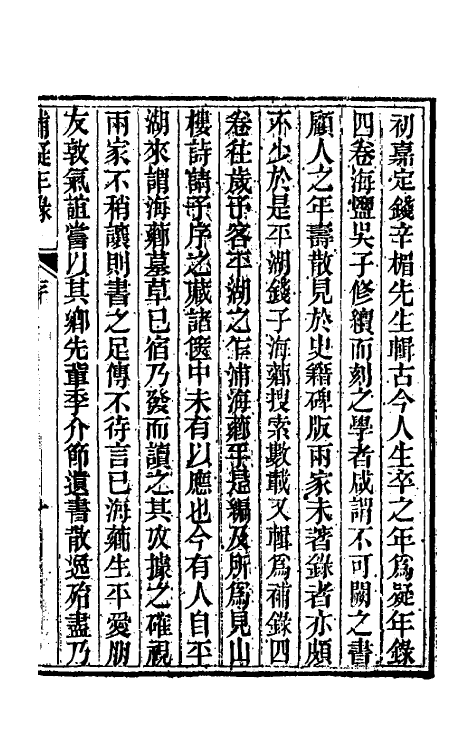 初嘉定錢辛楣先生輯古今人生卒之年爲疑年錄
四卷海鹽吳子修續而刻之學者咸謂不可闕之書
顧人之年壽散見於史籍碑版兩家未著錄者亦頗
不少於是平湖錢子海薌搜索數載又輯爲補錄四
卷往歲予客平湖之乍浦海薌手是編及所爲見山
樓詩請予序之藏諸篋中未有以應也今有人自平
湖來謂海薌墓草已宿乃發而讀之其攷據之確視
兩家不稍讓則書之足傳不待言已海薌生平愛朋
友敦氣誼嘗以其鄉先輩季介節遺書散逸殆盡乃
補疑年錄 序